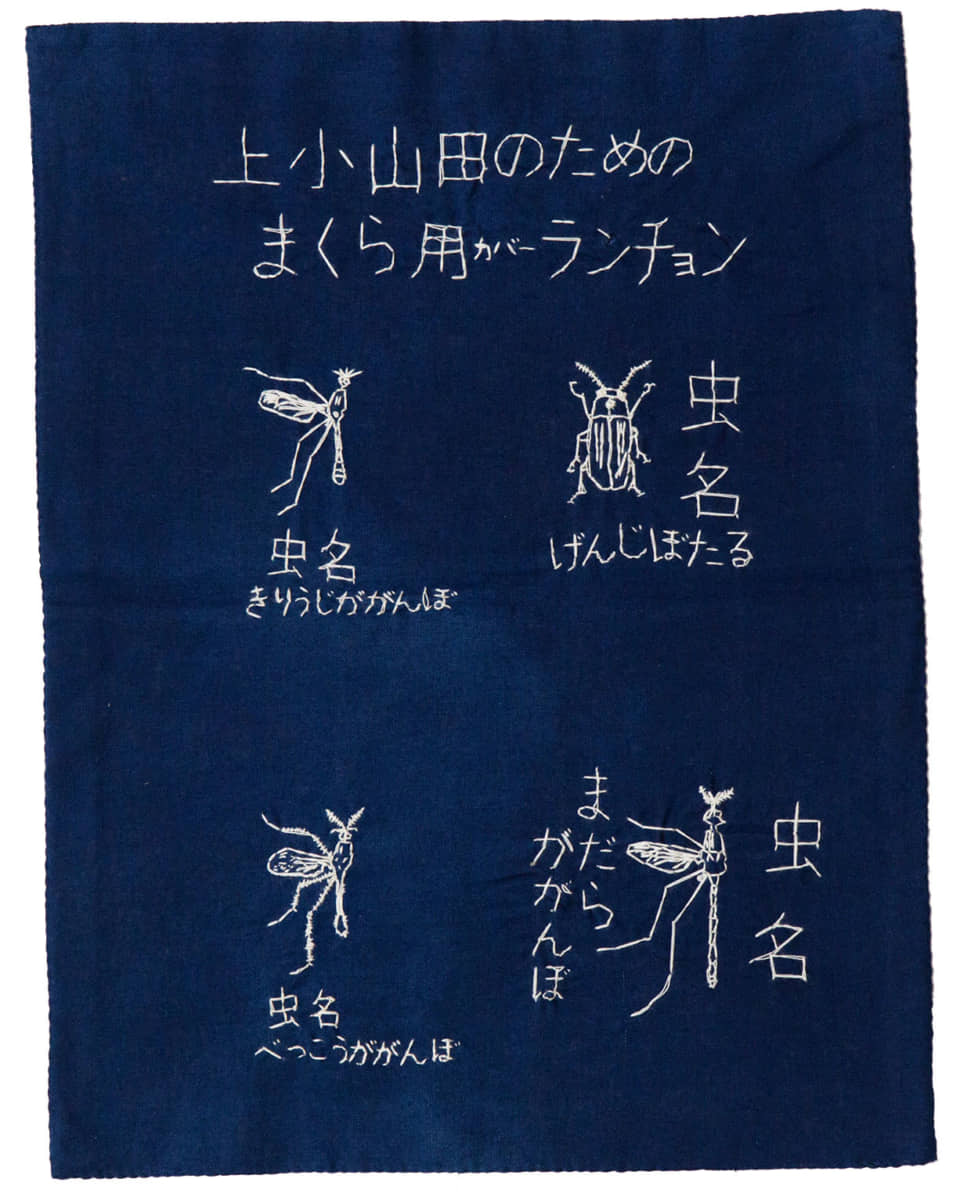 上小山田のための
まくら用カバーランチョン
虫名
きりうじががんぼ
虫名
げんじぼたる
虫名
べっこうががんぼ
虫名
まだら
ががんぼ